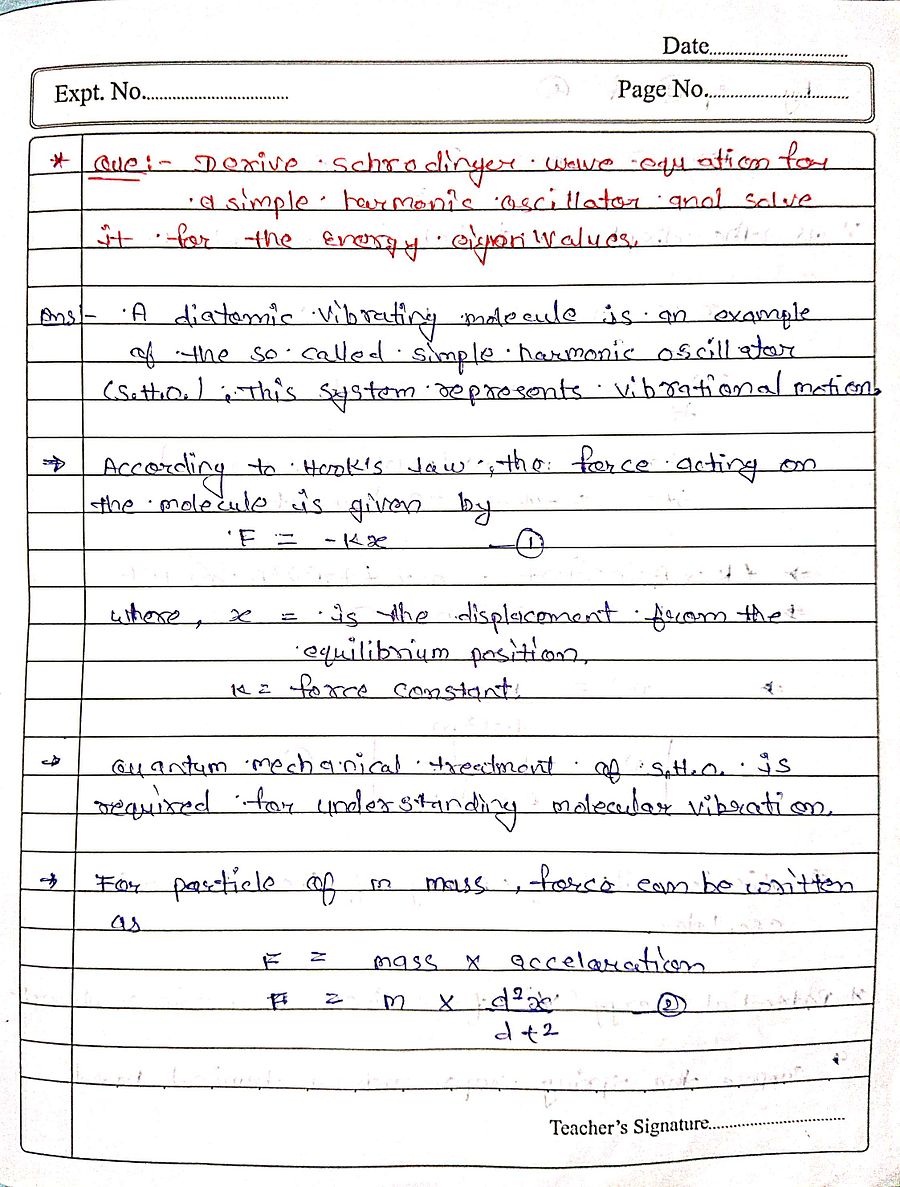 Date
Expt. No.
Page No.
* Que:- Derive schrodinger wave equation for
a simple harmonic oscillator and solve
it for the energy eigen values.
Ans:- A diatomic vibrating molecule is an example
of the so called simple harmonic oscillator
(S.H.O.), This system represents vibrational motion.
⇒ According to Hook's law, the force acting on
the molecule is given by
F = -Kx —①
where, x = is the displacement from the
equilibrium position.
K = force constant.
→ Quantum mechanical treatment of S.H.O. is
required for understanding molecular vibration.
→ For particle of m mass, force can be written
as
F = mass × accelaration
F = m × d²x —②
dt2
Teacher's Signature